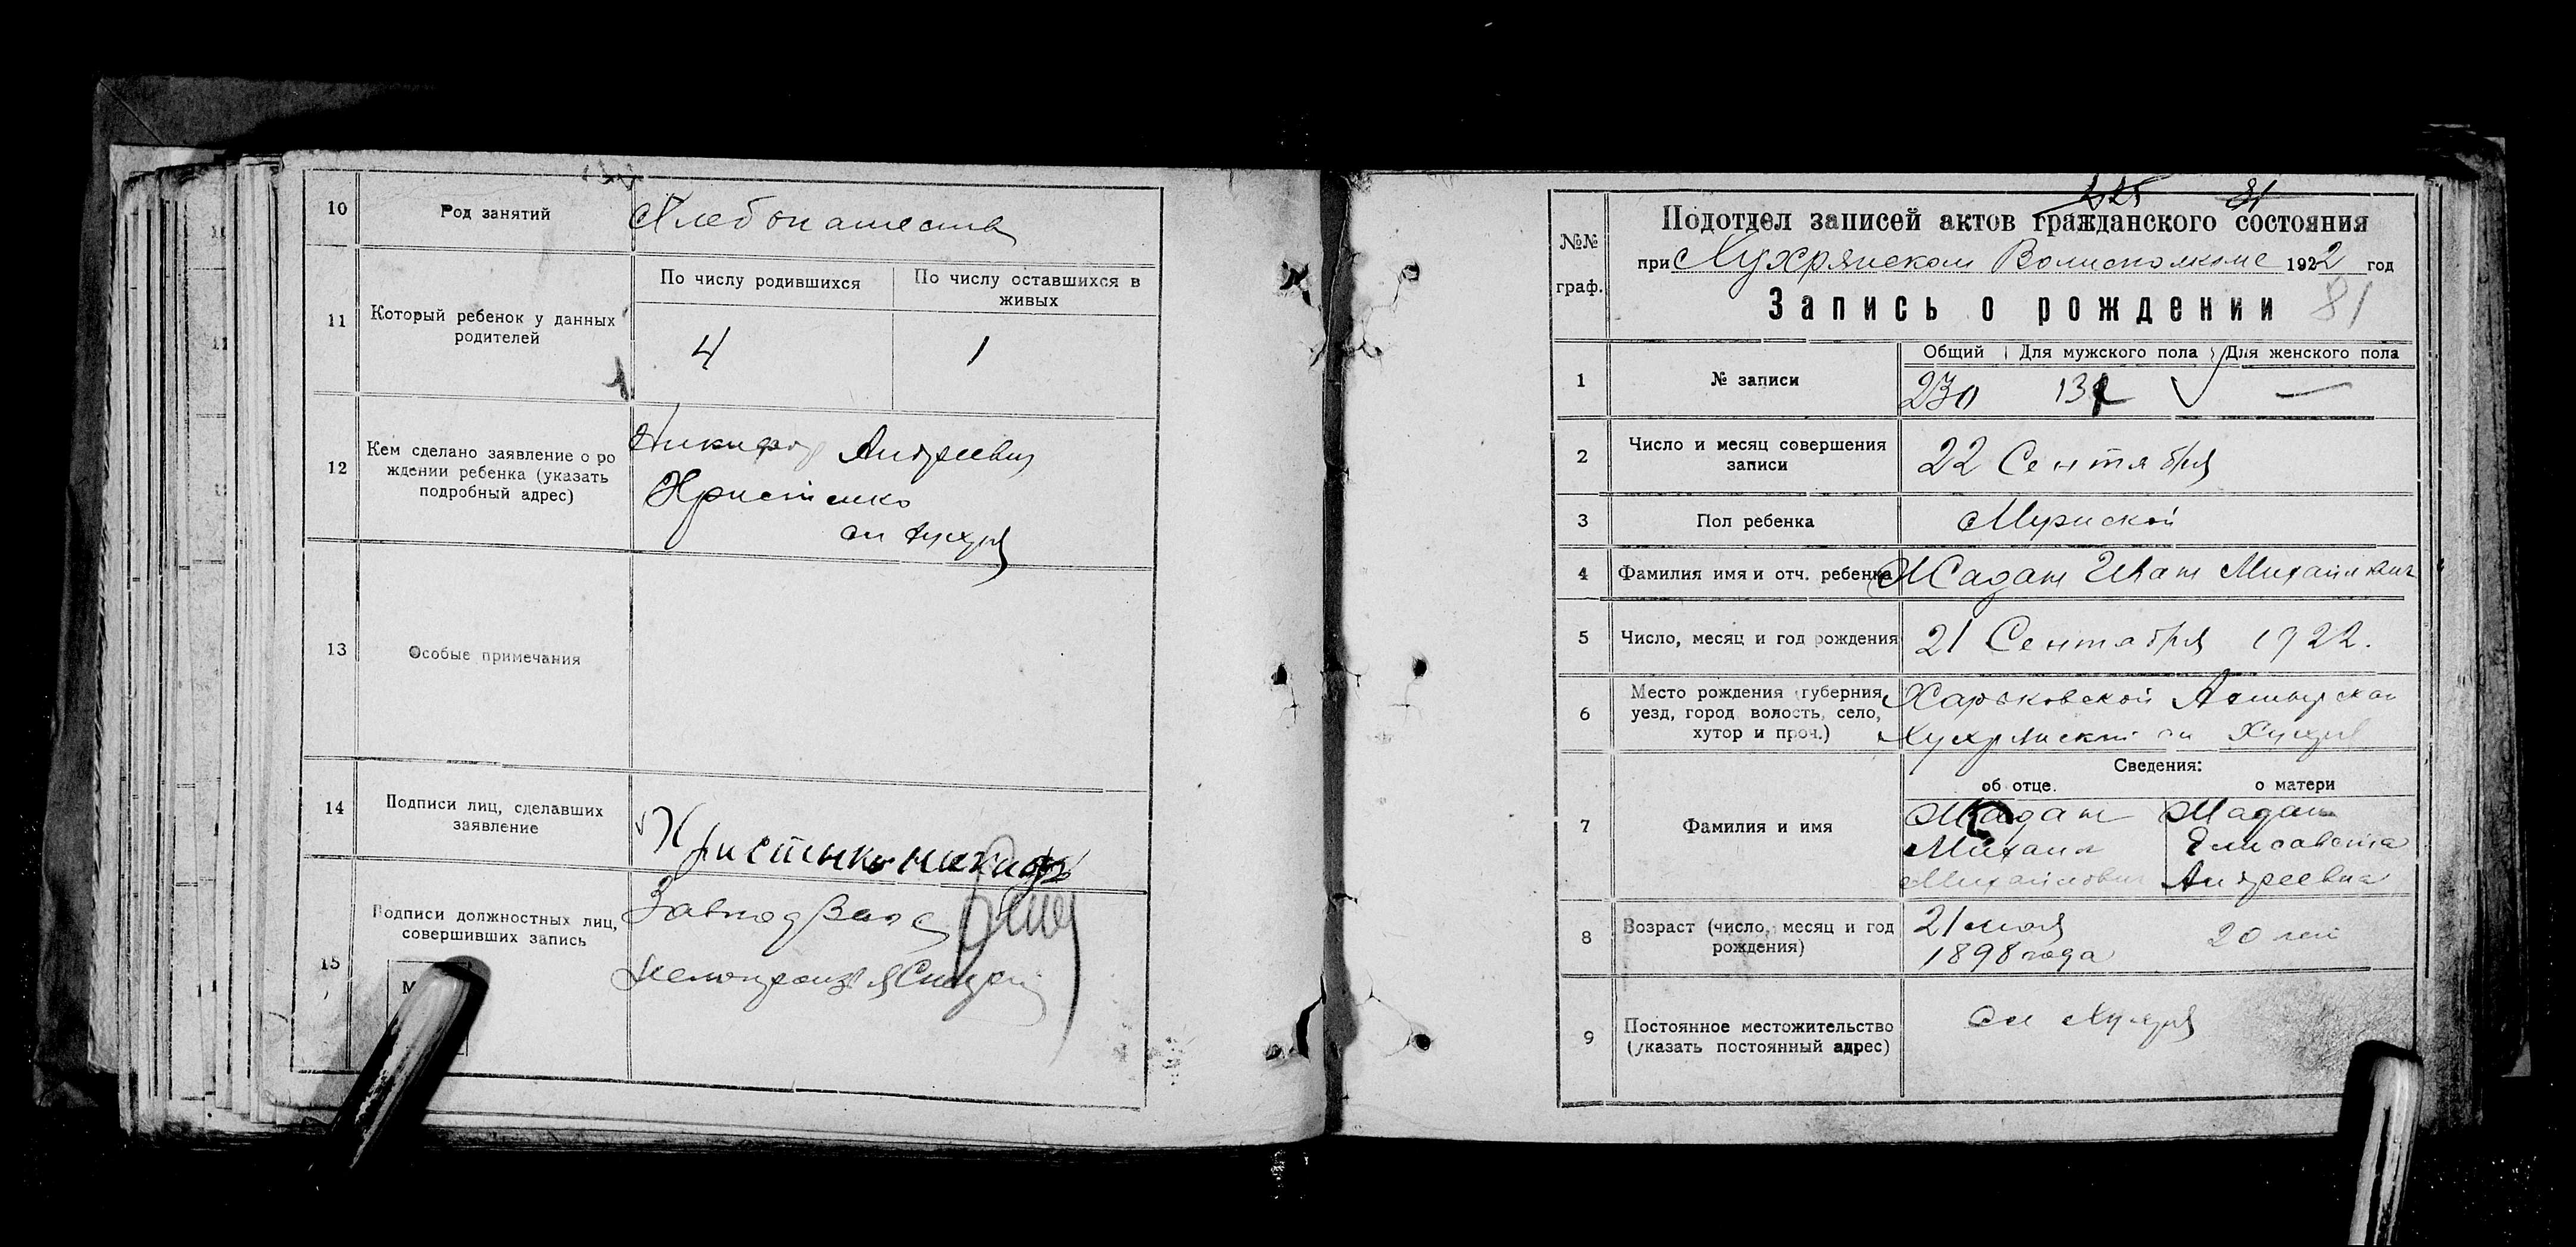 10 Род занятий Хлебопашество
11 Который ребенок у данных родителей
По числу родившихся
По числу оставшихся в живых
4 1
12 Кем сделано заявление о ро
ждении ребенка (указать
подробный адрес)
Никифор Андреевич
Христенко
13 Особые примечания
14 Подписи лиц, сделавших
заявление
15 Подписи должностных лиц,
совершивших запись
225 81
№№ граф.
Подотдел записей актов гражданского состояния
при Хухрянском Волисполкоме 1922 год
Запись о рождении 81
Общий Для мужского пола Для женского пола
1 № записи 230 —
2 Число и месяц совершения
записи
22 Сентября
3 Пол ребенка Мужской
4 Фамилия имя и отч. ребенка Жадан Иван Михайлович
5 Число, месяц и год рождения 21 Сентября 1922.
6 Место рождения (губерния,
уезд, город, волость, село,
хутор и проч.)
Харьковской Ахтырской
Хухрянской сл Хухря
Сведения:
об отце. о матери
7 Фамилия и имя
Жадан Жадан
Михаил Елисавета
Михайлович Андреевна
8 Возраст (число, месяц и год
рождения)
21 20 лет
1898 года
9 Постоянное местожительство
(указать постоянный адрес)
сл Хухря